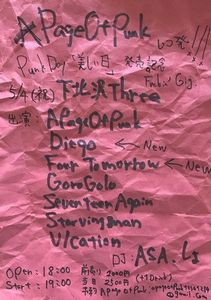 A Page Of Punk
レコ発!!!
Punk Day "美しい日" 発売記念
5/4 (祝) 下北沢Three
出演: A Page Of Punk
Diego ← New
Four Tomorrow ← New
GoroGolo
Seventeen Again
Starvingman
V/cation
DJ: ASA.
Open: 18:00 前売り 2000円
Start: 19:00 当日 2500円 (+1Drink)
予約 A Page Of Punk
@gmail.com